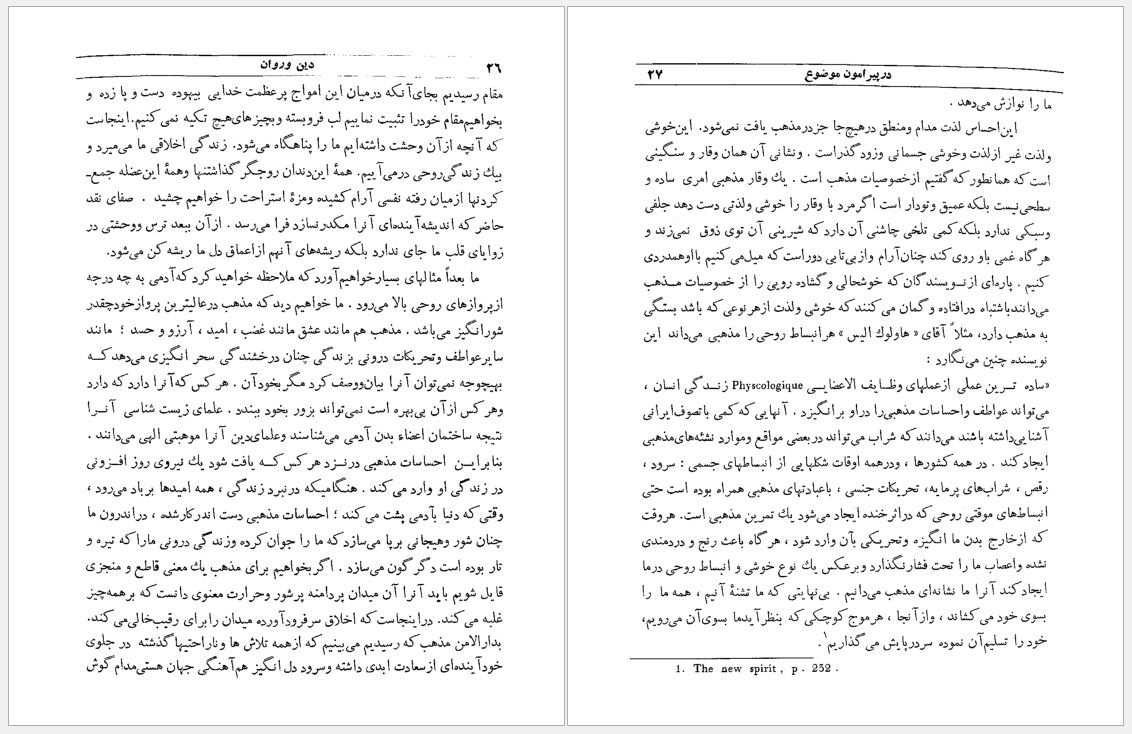 دین وروان ٢٦
مقام رسیدیم بجای‌آنکه درمیان این امواج پرعظمت خدایی بیهوده دست و پا زده و
بخواهیم‌مقام خودرا تثبیت نماییم لب فروبسته وبچیزهای‌هیچ تکیه نمی‌کنیم.اینجاست
که آنچه ازآن وحشت داشته‌ایم ما را پناهگاه می‌شود. زندگی اخلاقی ما می‌میرد و
بیك زندگی‌روحی درمی‌آییم. همهٔ این‌دندان روجگر گذاشتنها وهمهٔ این‌عضله جمع‌ـ
کردنها ازمیان رفته نفسی آرام‌کشیده ومزهٔ استراحت را خواهیم چشید . صفای نقد
حاضر که اندیشه‌آینده‌ای آنرا مکدرنسازد فرا می‌رسد . ازآن ببعد ترس ووحشتی در
زوایای قلب ما جای ندارد بلکه ریشه‌های آنهم ازاعماق دل ما ریشه‌کن می‌شود.
ما بعداً مثالهای بسیارخواهیم‌آوردکه ملاحظه خواهیدکردکه‌آدمی به چه درجه
ازپروازهای روحی بالا می‌رود . ما خواهیم دیدکه مذهب درعالیترین پروازخودچقدر
شورانگیز می‌باشد . مذهب هم مانند عشق مانند غضب ، امید ، آرزو و حسد ؛ مانند
سایرعواطف وتحریکات درونی بزندگی چنان درخشندگی سحر انگیزی می‌دهدکــه
بهیچوجه نمی‌توان آنرا بیان‌ووصف‌کرد مگربخودآن . هرکس‌که‌آنرا داردکه دارد
وهرکس ازآن بی‌بهره است نمی‌تواند بزور بخود ببندد . علمای زیست شناسی آنــرا
نتیجه ساختمان اعضاء بدن آدمی می‌شناسند وعلمای‌دین آنرا موهبتی الهی می‌دانند .
بنابرایــن احساسات مذهبی درنــزد هرکس‌کــه یافت شود یك نیروی روز افــزونی
در زندگی او وارد می‌کند . هنگامیکه درنبرد زندگی ، همه امیدها برباد می‌رود ،
وقتی‌که دنیا بآدمی پشت می‌کند ؛ احساسات مذهبی دست اندرکارشده ، دراندرون ما
چنان شور وهیجانی برپا می‌سازدکه ما را جوان‌کرده وزندگی درونی ماراکه تیره و
تار بوده است دگرگون می‌سازد . اگربخواهیم برای مذهب یك معنی قاطع و منجزی
قایل شویم باید آنرا آن میدان پردامنه پرشور وحرارت معنوی دانست که برهمه‌چیز
غلبه می‌کند. دراینجاست‌که اخلاق سرفرودآورده میدان رابرای رقیب‌خالی‌می‌کند.
بدارالامن مذهب‌که رسیدیم می‌بینیم که ازهمه تلاش ها وناراحتیهاگذشته در جلوی
خودآینده‌ای ازسعادت ابدی داشته وسرود دل‌انگیز هم‌آهنگی جهان هستی‌مدام‌گوش
درپیرامون موضوع ٢٧
ما را نوازش می‌دهد .
این‌احساس لذت مدام ومنطق درهیچ‌جا جزدرمذهب یافت نمی‌شود. این‌خوشی
ولذت غیر ازلذت وخوشی جسمانی وزودگذراست . ونشانی آن همان وقار و سنگینی
است‌که همانطورکه‌گفتیم ازخصوصیات مذهب است . یك وقار مذهبی امری ساده و
سطحی‌نیست بلکه عمیق وتودار است اگرمرد با وقار را خوشی ولذتی دست دهد جلفی
وسبکی ندارد بلکه‌کمی تلخی چاشنی آن داردکه شیرینی آن توی ذوق نمی‌زند و
هرگاه غمی باو روی‌کند چنان‌آرام وازبی‌تابی دوراست‌که میل‌می‌کنیم بااوهمدردی
کنیم . پاره‌ای ازنــویسندگان‌که خوشحالی وگشاده رویی را از خصوصیات مــذهب
می‌دانندباشتباه درافتاده وگمان می‌کنندکه خوشی ولذت ازهرنوعی‌که باشد بستگی
به مذهب دارد، مثلاً آقای « هاولوك الیس » هرانبساط روحی‌را مذهبی می‌داند این
نویسنده چنین می‌نگارد :
«ساده تــرین عملی ازعملهای وظــایف الاعضایــی Physcologique زنــدگی انسان ،
می‌تواند عواطف واحساسات مذهبی‌را دراو برانگیزد . آنهایی‌که‌کمی باتصوف‌ایرانی
آشنایی‌داشته باشند می‌دانندکه شراب می‌تواند دربعضی مواقع وموارد نشئه‌های‌مذهبی
ایجادکند . در همه‌کشورها ، ودرهمه اوقات شکلهایی از انبساطهای جسمی : سرود ،
رقص ، شراب‌های پرمایه، تحریکات جنسی ، باعبادتهای مذهبی همراه بوده است حتی
انبساط‌های موقتی روحی‌که دراثرخنده ایجاد می‌شود یك تمرین مذهبی است. هروقت
که ازخارج بدن ما انگیزه وتحریکی بآن وارد شود ، هرگاه باعث رنج و دردمندی
نشده واعصاب ما را تحت فشارنگذارد وبرعکس یك نوع خوشی و انبساط روحی درما
ایجادکند آنرا ما نشانه‌ای مذهب می‌دانیم . بی‌نهایتی که ما تشنهٔ آنیم ، همه ما را
بسوی خود می‌کشاند ، وازآنجا ، هرموج‌کوچکی‌که بنظرآیدما بسوی‌آن می‌رویم،
خود را تسلیم‌آن نموده سردرپایش می‌گذاریم١.
1. The new spirit, p. 232 .